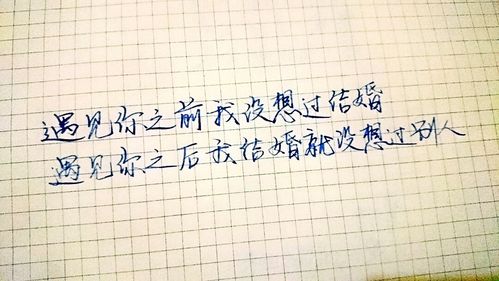 遇见你之前我没想过结婚
遇见你之后我结婚就没想过别人